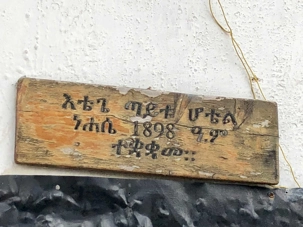 እቴጌ ጣይቱ ሆቴል
ነሐሴ 1898 ዓ.ም
ተቋቋመ።